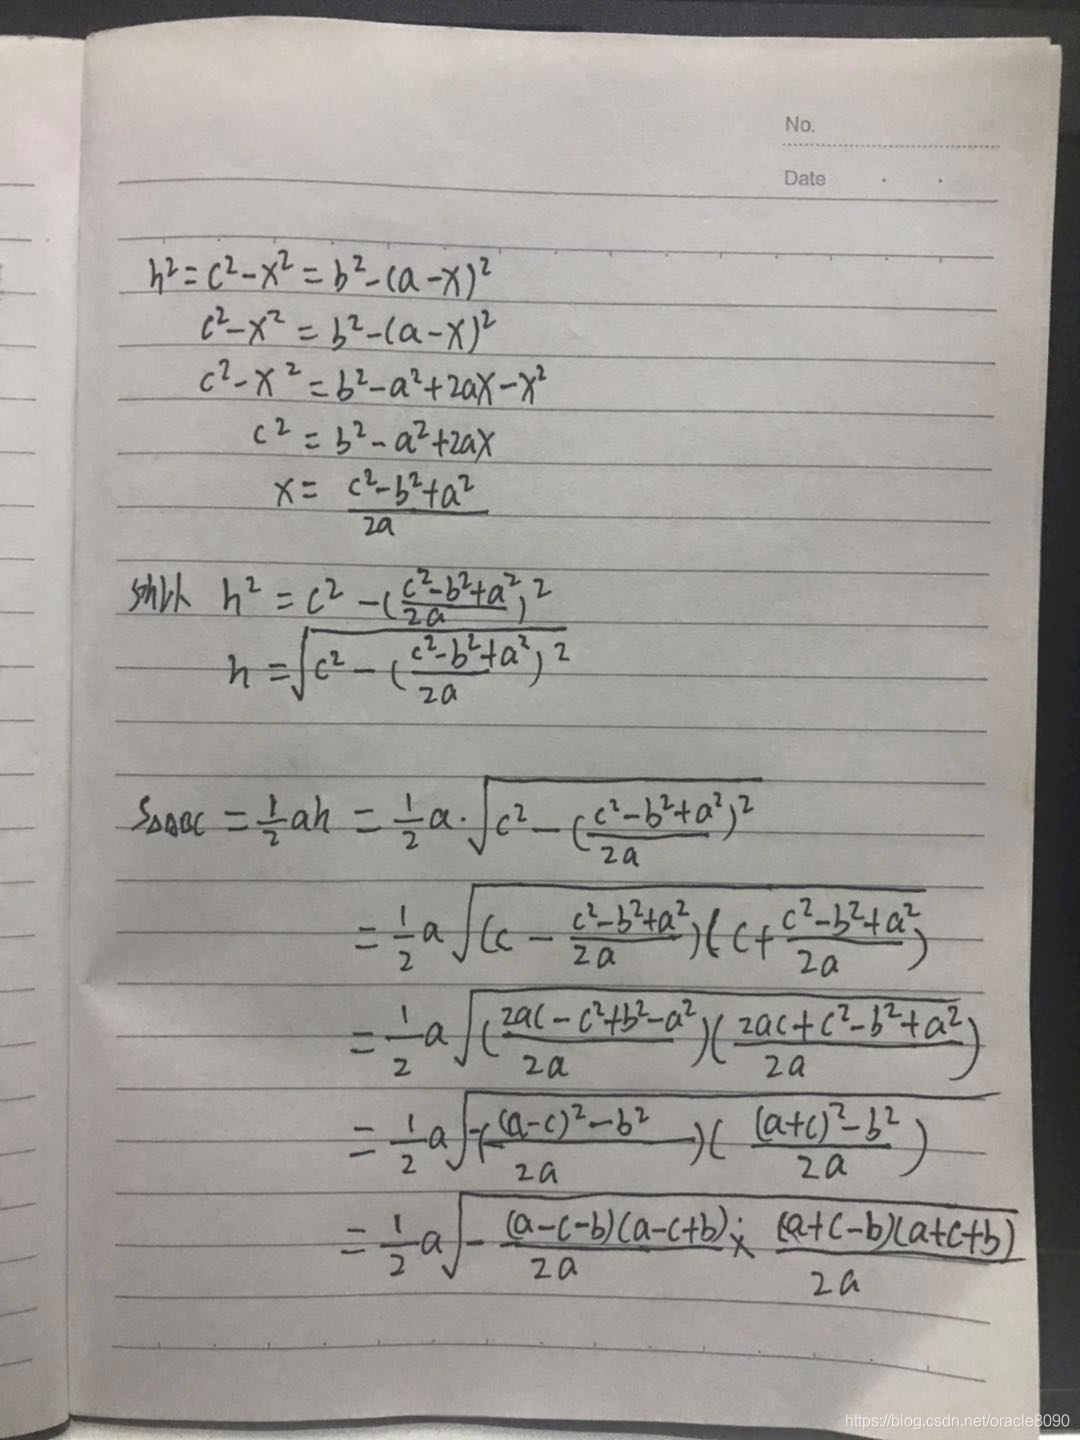 No.
Date
h²=c²-x²=b²-(a-x)²
c²-x²=b²-(a-x)²
c²-x²=b²-a²+2ax-x²
c²=b²-a²+2ax
x=\frac{c²-b²+a²}{2a}
所以 h²=c²-(\frac{c²-b²+a²}{2a})²
h=\sqrt{c²-(\frac{c²-b²+a²}{2a})²}
S△ABC=\frac{1}{2}ah=\frac{1}{2}a·\sqrt{c²-(\frac{c²-b²+a²}{2a})²}
=\frac{1}{2}a\sqrt{(c-\frac{c²-b²+a²}{2a})(c+\frac{c²-b²+a²}{2a})}
=\frac{1}{2}a\sqrt{(\frac{2ac-c²+b²-a²}{2a})(\frac{2ac+c²-b²+a²}{2a})}
=\frac{1}{2}a\sqrt{-(\frac{(a-c)²-b²}{2a})(\frac{(a+c)²-b²}{2a})}
=\frac{1}{2}a\sqrt{-\frac{(a-c-b)(a-c+b)}{2a}×\frac{(a+c-b)(a+c+b)}{2a}}
https://blog.csdn.net/oracle8090